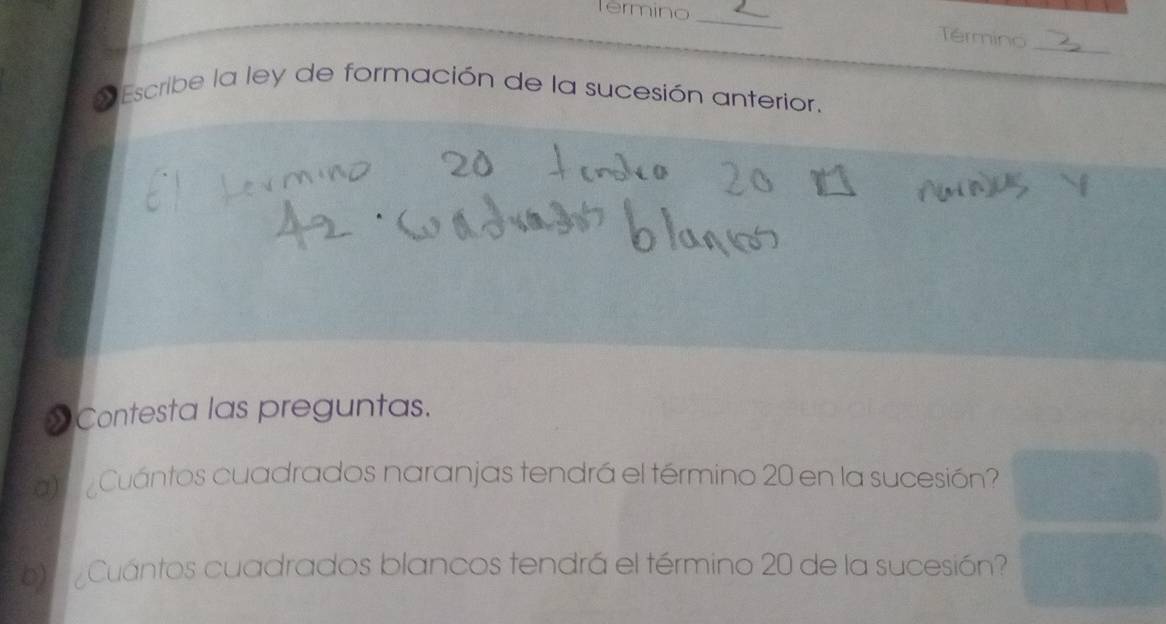 Término 2
Término 2
Escribe la ley de formación de la sucesión anterior.
El termino 20 tendra 20 □ y
42 cuadrados blancos
Contesta las preguntas.
a) ¿Cuántos cuadrados naranjas tendrá el término 20 en la sucesión?
b) ¿Cuántos cuadrados blancos tendrá el término 20 de la sucesión?